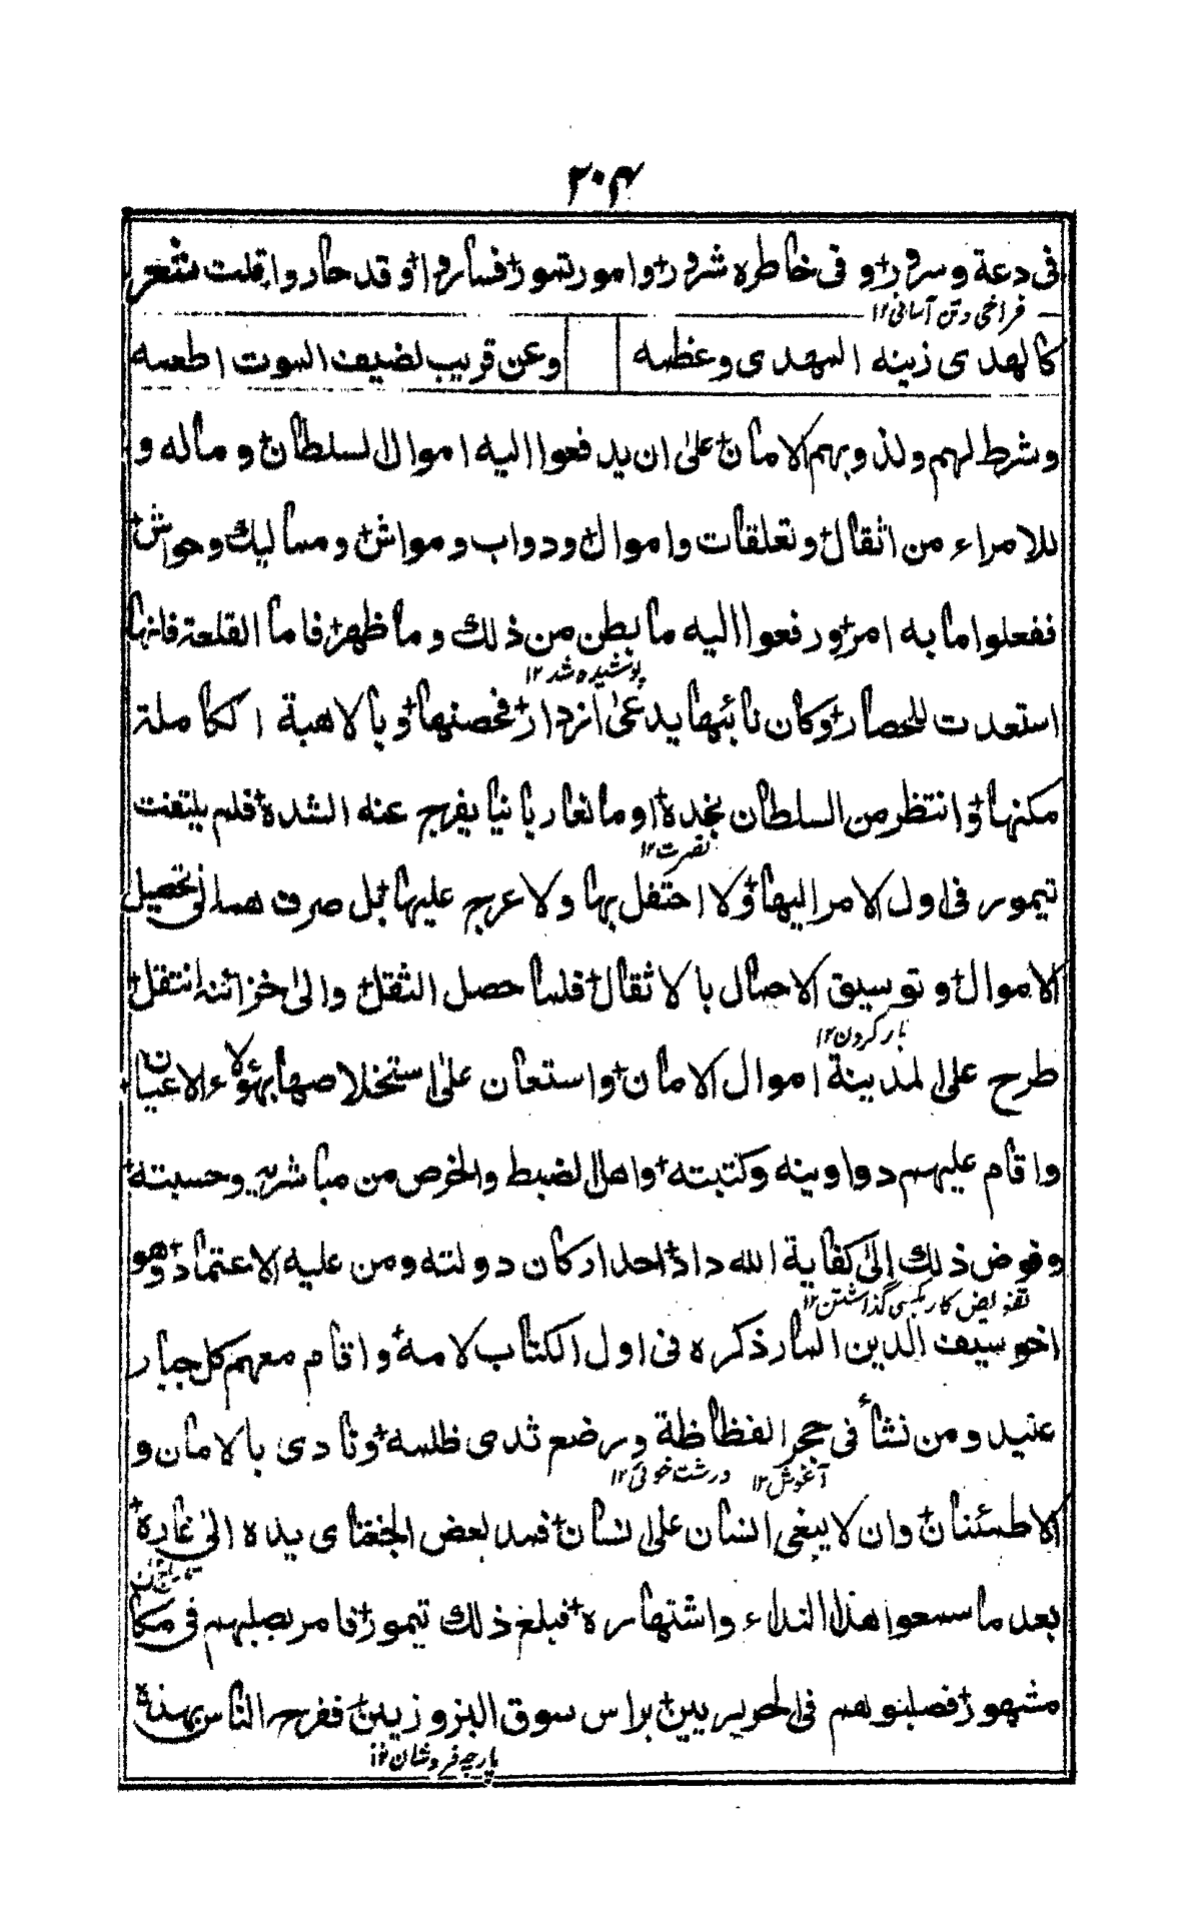 ۲۰۴
فی دعة وسرور و فی خاطره شرور وامور تمور فساروا وقد حاروا قلت شعر
فراخی وتن آسانی ۱۲
کالهدی زینه المهدی وعظمه وعن قریب لضیف الموت اطعمه
وشرط لهم ولذویهم الامان علی ان یدفعوا الیه اموال السلطان وماله و
للامراء من اثقال وتعلقات واموال ودواب ومواش وممالیك وحواش
ففعلوا مابه امر ورفعوا الیه ما بطن من ذلك وما ظهر فاما القلعة فانها
پوشیده شد ۱۲
استعدت للحصار وکان نائبها یدعی ازدار فحصنها وبالاهبة الکاملة
مکنها وانتظر من السلطان نجدة او مانعا ربانیا یفرج عنه الشدة فلم یلتفت
نصرت ۱۲
تیمور فی اول الامر الیها ولا احتفل بها ولا عرج علیها بل صرف همه الی تحصیل
الاموال وتوسیق الاحمال بالاثقال فلما حصل الثقل والی خزائنه انتقل
بار کردن ۱۲
طرح علی المدینة اموال الامان واستعان علی استخلاصها بهؤلاء الاعیان
واقام علیهم دواوینه وکتبته واهل الضبط والخرص من مباشریه وحسبته
وفوض ذلك الی کفایة الله داد احد ارکان دولته ومن علیه الاعتماد وهو
تفویض کار بکسی گذاشتن ۱۲
اخو سیف الدین المار ذکره فی اول الکتاب لامه واقام معهم کل جبار
عنید ومن نشأ فی حجر الفظاظة ورضع ثدی ظلمه ونادی بالامان و
آغوش ۱۲ درشت خوئی ۱۲
الاطمئنان وان لا یبغی انسان علی انسان فمد بعض الجغتای یده الی غارة
بعد ما سمعوا هذا النداء واشتهاره فبلغ ذلك تیمور فامر بصلبهم فی مکان
مشهور فصلبوهم فی الحریریین براس سوق البزوزیین ففرح الناس بهذه
پارچه فروشان ۱۲